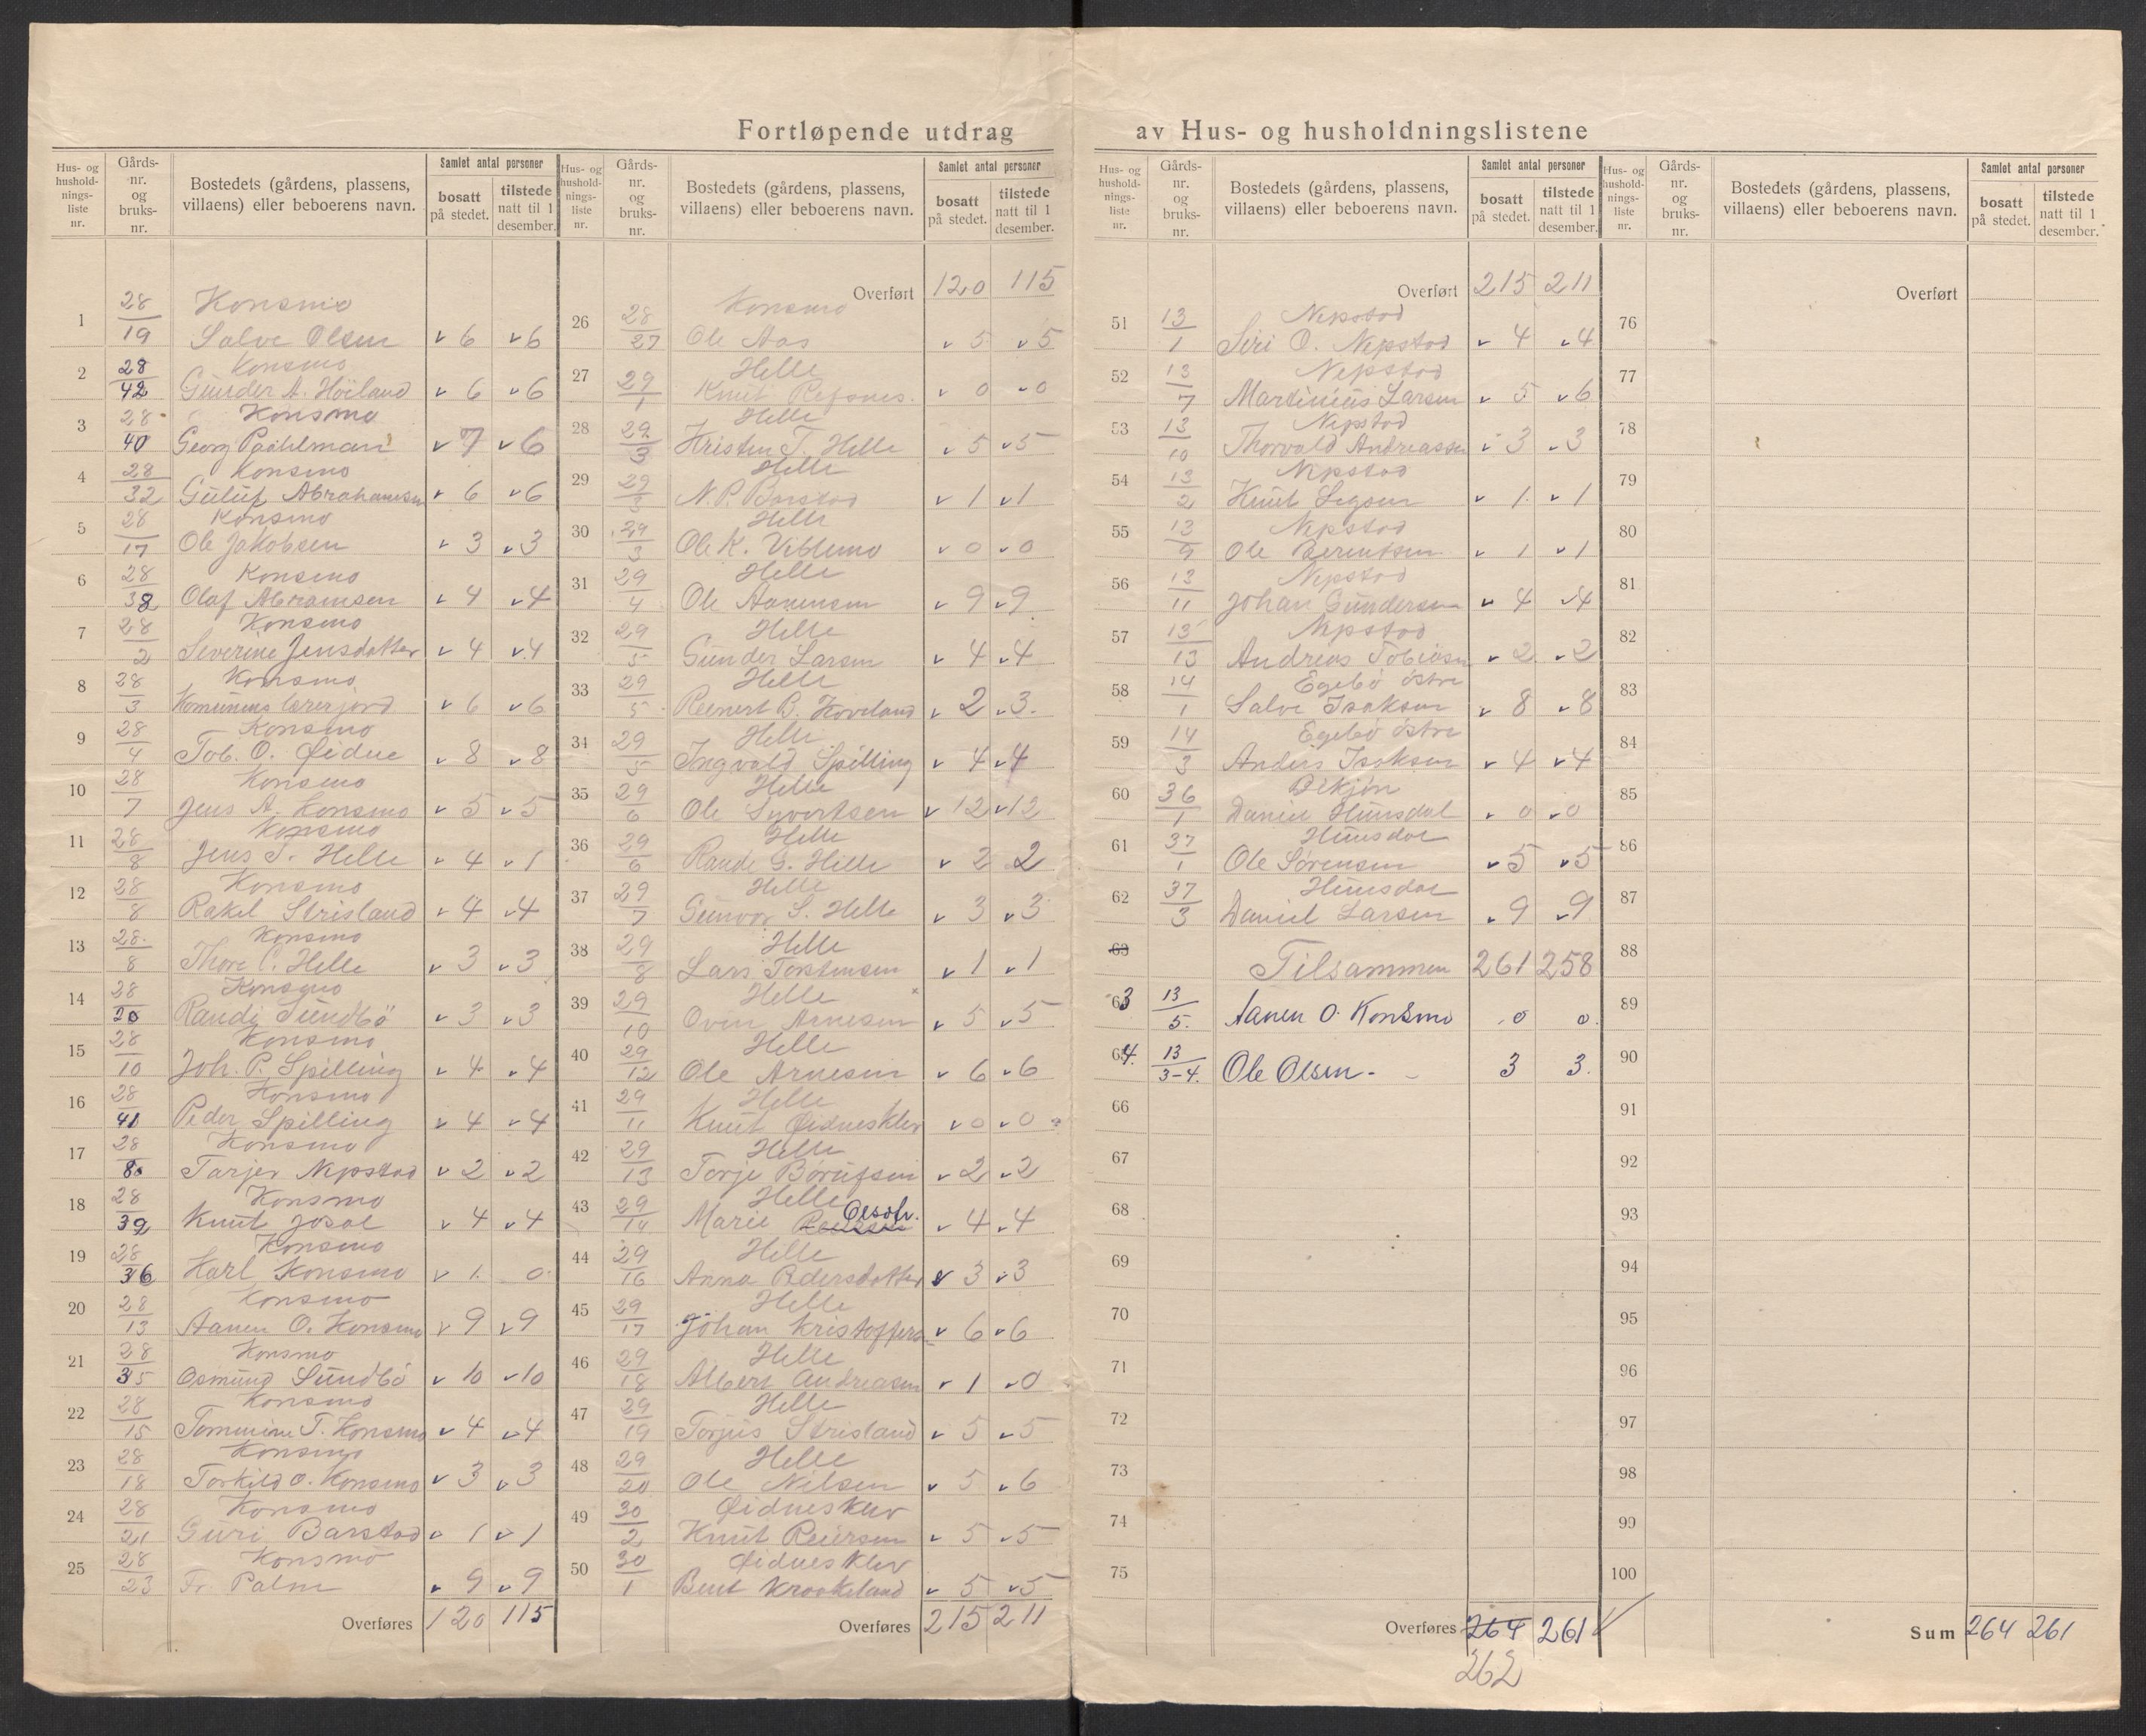 Fortløpende utdrag av Hus- og husholdningslistene
Hus- og hushold-nings-liste nr. | Gårds-nr. og bruks-nr. | Bostedets (gårdens, plassens, villaens) eller beboerens navn. | Samlet antal personer | bosatt på stedet. | tilstede natt til 1 desember.
1 28/19 Konsmo
Salve Olsen 6 6
2 28/42 Konsmo
Gunder A. Höiland 6 6
3 28/40 Konsmo
Georg 7 6
4 28/32 Konsmo
Guluf Abrahamsen 6 6
5 28/17 Konsmo
Ole Jakobsen 3 3
6 28/38 Konsmo
Olaf Abramsen 4 4
7 28/2 Konsmo
Severine Jensdatter 4 4
8 28/3 Konsmo
Komunens lærerjord 6 6
9 28/4 Konsmo
Tob. O. Øidne 8 8
10 28/7 Konsmo
Jens A. Konsmo 5 5
11 28/8 Konsmo
Jens T. Helle 4 1
12 28/8 Konsmo
Rakel Strisland 4 4
13 28/8 Konsmo
Thore C. Helle 3 3
14 28/20 Konsmo
Randi Sundbö 3 3
15 28/10 Konsmo
Joh. P. Spilling 4 4
16 28/41 Konsmo
Peder Spilling 4 4
17 28 Konsmo
Tarjer Nepstad 2 2
18 28/39 Konsmo
Knut Josal 4 4
19 28/36 Konsmo
Karl Konsmo 1 0
20 28/13 Konsmo
Aanen O. Konsmo 9 9
21 28/35 Konsmo
Osmund Sundbö 10 10
22 28/15 Konsmo
Tommine T. Konsmo 4 4
23 28/18 Konsmo
Torkild O. Konsmo 3 3
24 28/21 Konsmo
Guri Barstad 1 1
25 28/23 Konsmo
Fr. Palm 9 9
Overføres 120 115
Hus- og hushold-nings-liste nr. | Gårds-nr. og bruks-nr. | Bostedets (gårdens, plassens, villaens) eller beboerens navn. | Samlet antal personer | bosatt på stedet. | tilstede natt til 1 desember.
Overført 120 115
26 28/27 Konsmo
Ole Aas 5 5
27 29/1 Helle
Knut Refsnes. 0 0
28 29/3 Helle
Kristen T. Helle 5 5
29 29/3 Helle
N. P. Barstad 1 1
30 29/3 Helle
Ole K. Viblemo 0 0
31 29/4 Helle
Ole Aanensen 9 9
32 29/5 Helle
Gunder Larsen 4 4
33 29/5 Helle
Reinert B. Hoveland 2 3
34 29/5 Helle
Ingvald Spilling 4 4
35 29/6 Helle
Ole Syvertsen 12 12
36 29/6 Helle
Randi G. Helle 2 2
37 29/7 Helle
Gunvor S. Helle 3 3
38 29/8 Helle
Lars Torstensen 1 1
39 29/10 Helle
Oven Arnesen 5 5
40 29/12 Helle
Ole Arnesen 6 6
41 29/11 Helle
Knut Øidnesklev 0 0
42 29/13 Helle
Torje Börufsen 2 2
43 29/14 Helle
Marie Olsdtr. 4 4
44 29/16 Helle
Anna Pedersdatter 3 3
45 29/17 Helle
Johan Kristoffers 6 6
46 29/18 Helle
Albert Andreasen 1 0
47 29/19 Helle
Torjus Strisland 5 5
48 29/20 Helle
Ole Nilsen 5 6
49 30/2 Øidnesklev
Knut Reiersen 5 5
50 30/1 Øidnesklev
Bent Kraakeland 5 5
Overføres 215 211
Hus- og hushold-nings-liste nr. | Gårds-nr. og bruks-nr. | Bostedets (gårdens, plassens, villaens) eller beboerens navn. | Samlet antal personer | bosatt på stedet. | tilstede natt til 1 desember.
Overført 215 211
51 13/1 Nepstad
Siri O. Nepstad 4 4
52 13/7 Nepstad
Martinius Larsen 5 6
53 13/10 Nepstad
Thorvald Andreassen 3 3
54 13/2 Nepstad
Knut 1 1
55 13/9 Nepstad
Ole Berentsen 1 1
56 13/11 Nepstad
Johan Gundersen 4 4
57 13/13 Nepstad
Andreas Tobiasen 2 2
58 14/1 Egebö östre
Salve Isaksen 8 8
59 14/3 Egebö östre
Anders Isaksen 4 4
60 36/1
Daniel Hunsdal 0 0
61 37/1 Hunsdal
Ole Sörensen 5 5
62 37/3 Hunsdal
Daniel Larsen 9 9
63 Tilsammen 261 258
63 13/5. Aanen O. Konsmo 0 0.
64. 13/3-4. Ole Olsen - 3 3.
66
67
68
69
70
71
72
73
74
75
Overføres 264 261
262
Hus- og hushold-nings-liste nr. | Gårds-nr. og bruks-nr. | Bostedets (gårdens, plassens, villaens) eller beboerens navn. | Samlet antal personer | bosatt på stedet. | tilstede natt til 1 desember.
Overført
76
77
78
79
80
81
82
83
84
85
86
87
88
89
90
91
92
93
94
95
96
97
98
99
100
Sum 264 261